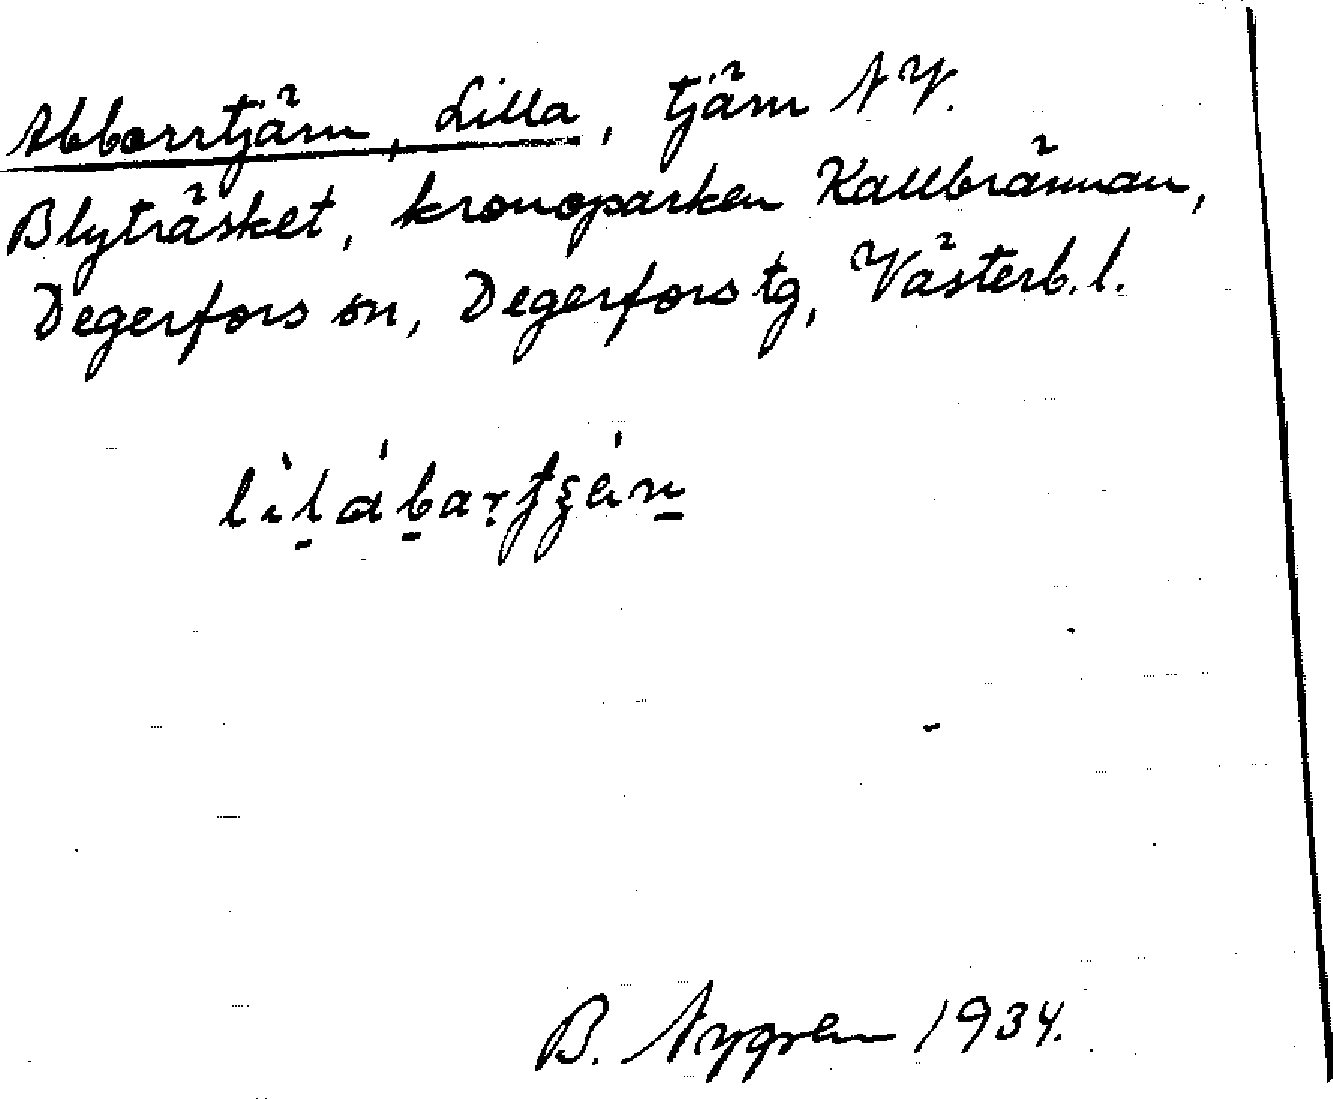 Abborrtjärn, Lilla, tjärn N V.
Blyträsket, kronoparken Kallbrännan,
Degerfors sn, Degerfors tg, Västerb. l.
B. Nygren 1934.